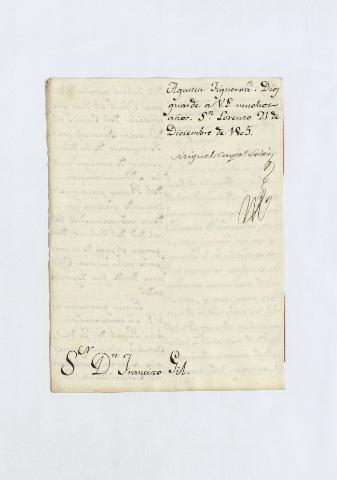 Agustin Figueroa. Dios
guarde a V.E. muchos
años. Sn. Lorenzo 21 de
Diciembre de 1805.
Miguel Cayet.º Soler
Sor. Dn. Francisco Gil.